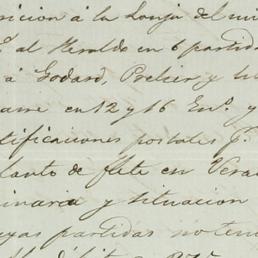 sicion á la Lonja del mi
al Heraldo en 6 partida
á Godard, Prelier y
arre en 12 y 16 En.º, y
tificaciones postales J.º
lanto de flete en Vera
inaria y situacion
uyas partidas no ten